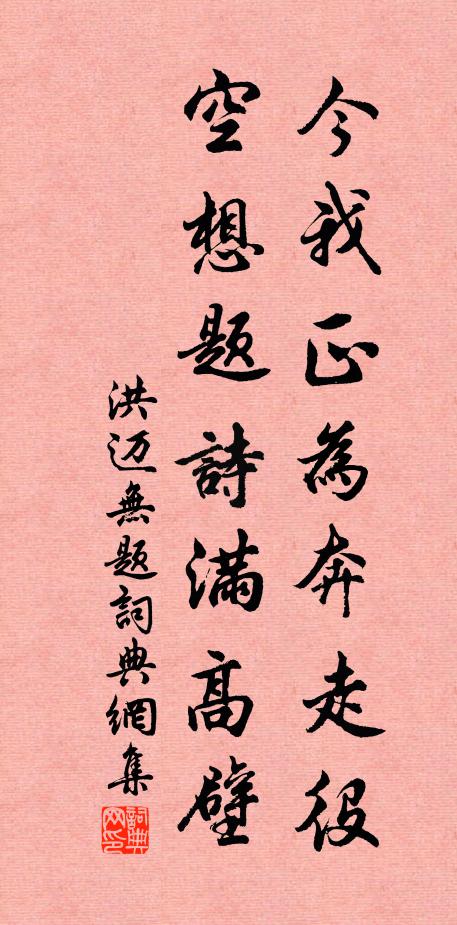 今我正為奔走役
空想题詩满高壁
洪迈無题詞典網集
詞典网印